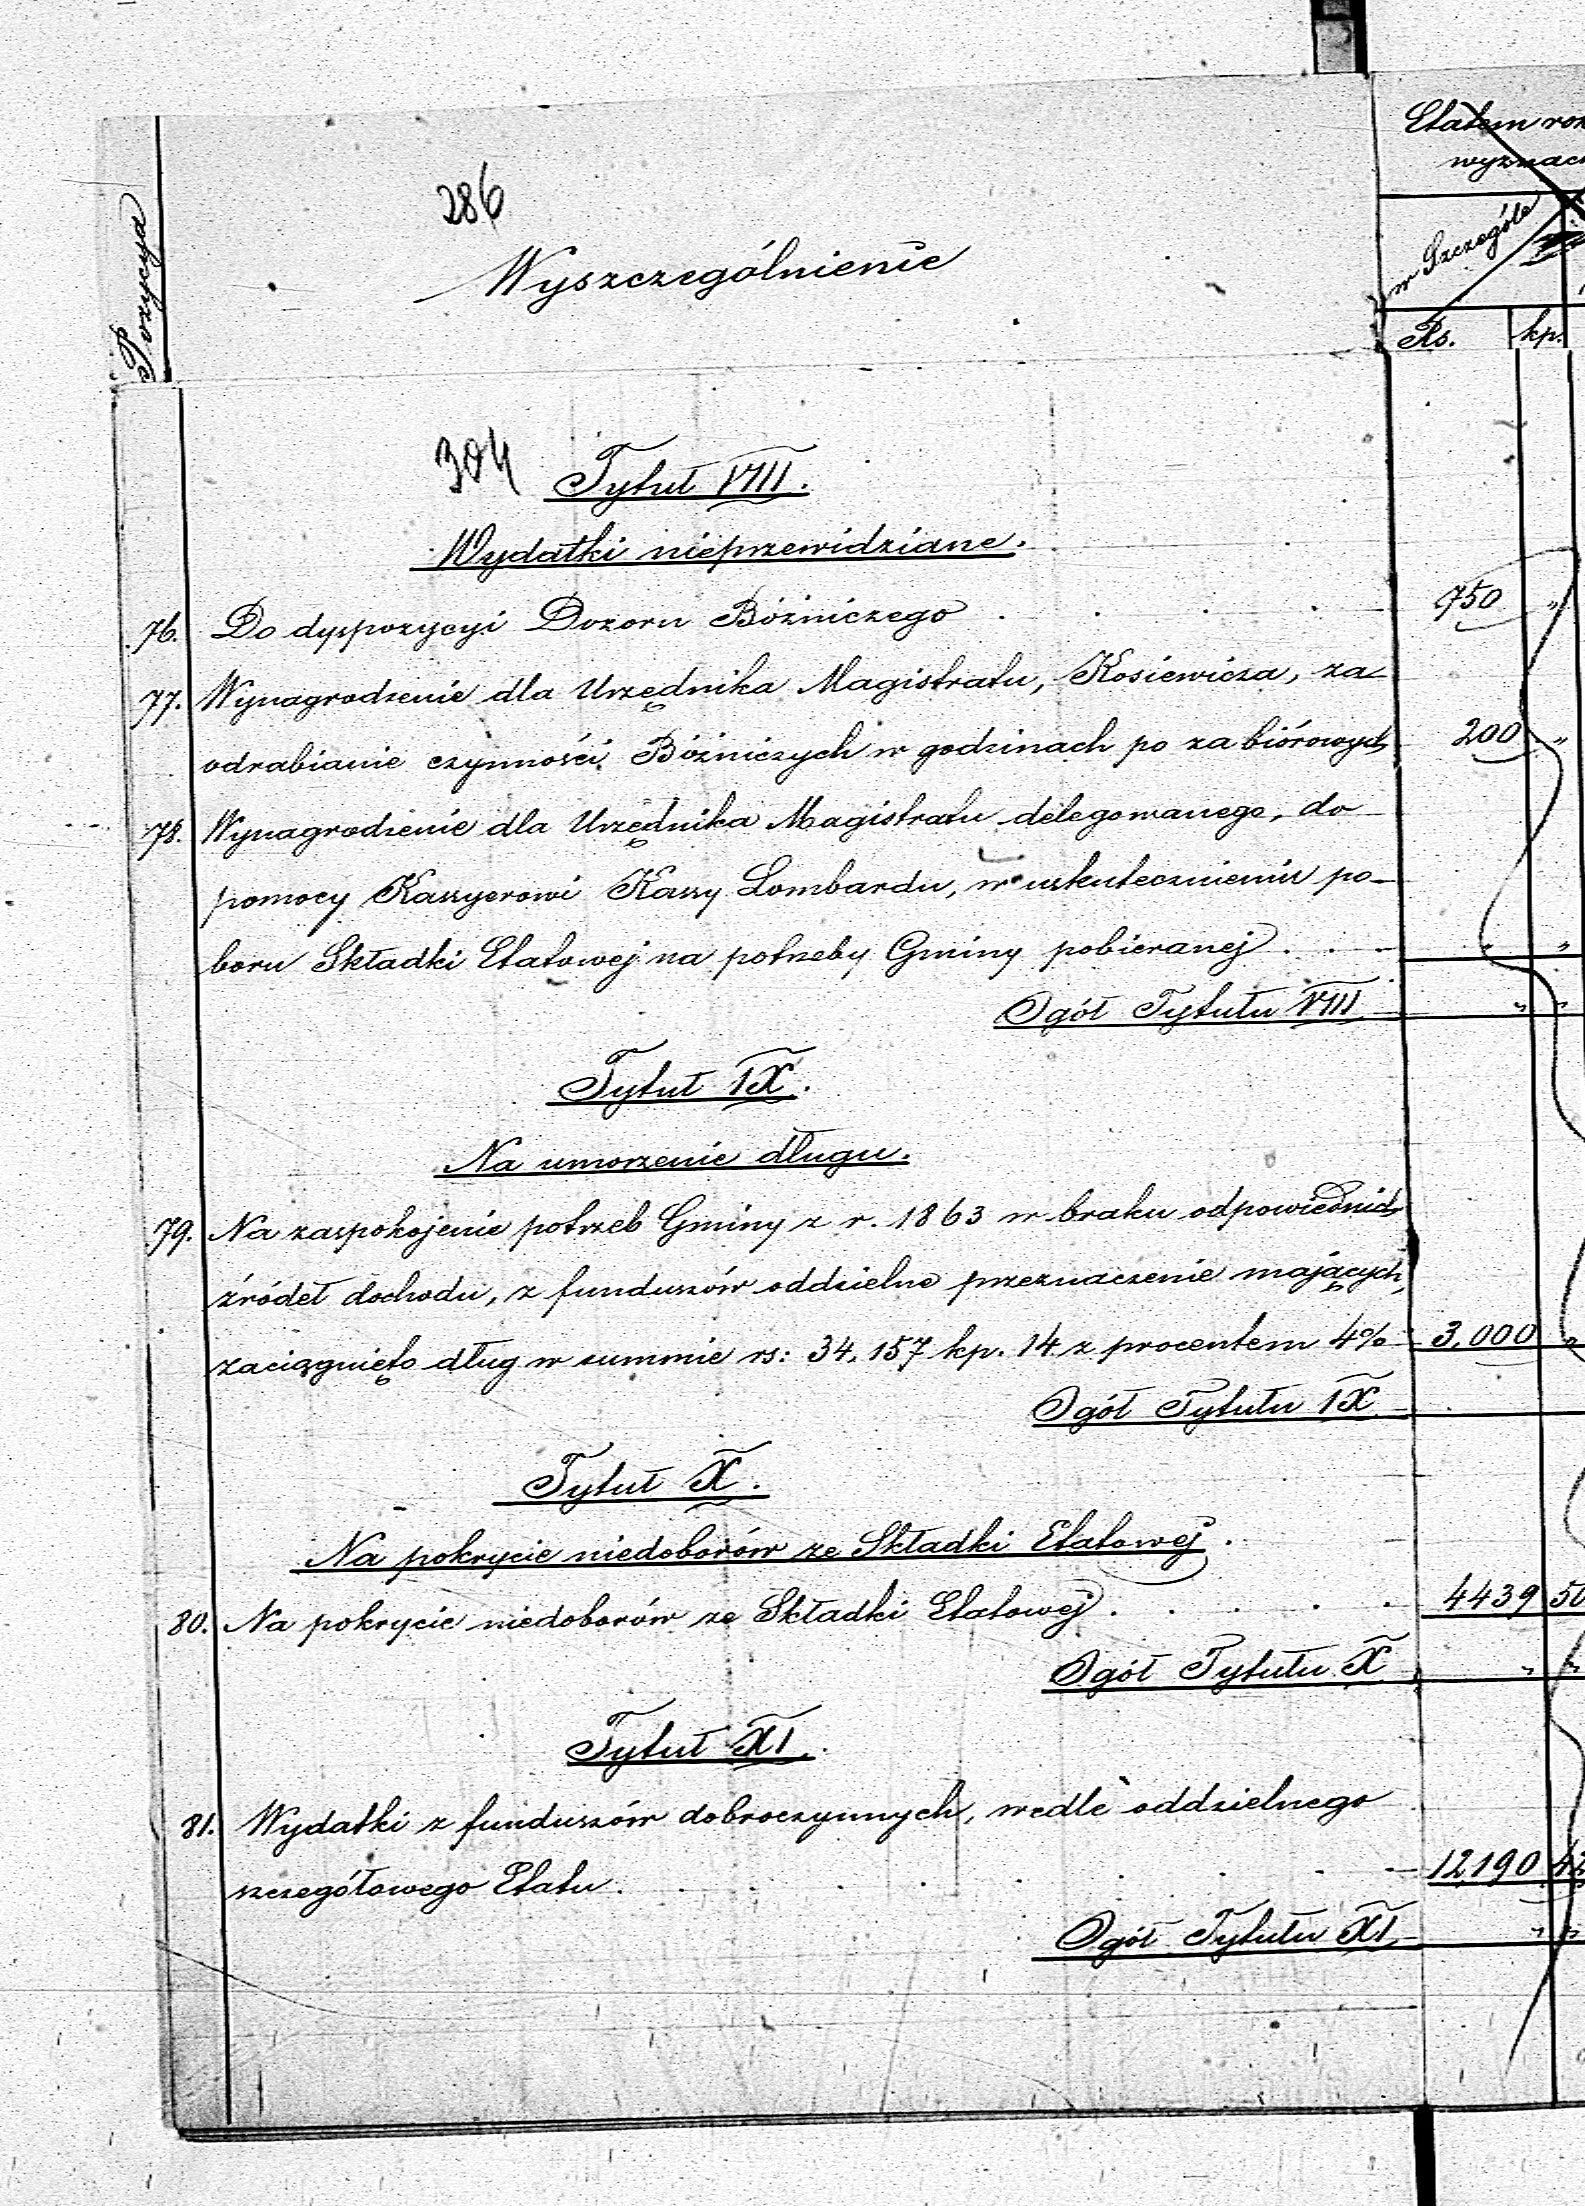 286
Pozycya
Wyszczególnienie
Etatem
w Szczególe
Rs. kp.
304
Tytuł VIII.
Wydatki nieprzewidziane.
76. Do dyspozycyi Dozoru Bóźniczego . . . . 750 "
77. Wynagrodzenie dla Urzędnika Magistratu, Kosiewicza, za
odrabianie czynności Bóźniczych w godzinach po za biórowych 200 "
78. Wynagrodzenie dla Urzędnika Magistratu delegowanego, do
pomocy Kassyerowi Kassy Lombardu, w uskutecznieniu po-
boru Składki Etatowej na potrzeby Gminy pobieranej . . . " "
Ogół Tytułu VIII " "
Tytuł IX.
Na umorzenie długu.
79. Na zaspokojenie potrzeb Gminy z r. 1863 w braku odpowiednich
źródeł dochodu, z funduszów oddzielne przeznaczenie mających,
zaciągnięto dług w summie rs: 34,157 kp. 14 z procentem 4% 3,000 "
Ogół Tytułu IX
Tytuł X.
Na pokrycie niedoborów ze Składki Etatowej.
80. Na pokrycie niedoborów ze Składki Etatowej . . . . . 4439 50
Ogół Tytułu X " "
Tytuł XI.
81. Wydatki z funduszów dobroczynnych, wedle oddzielnego
szczegółowego Etatu . . . . . . . . 12,190 42
Ogół Tytułu XI " "